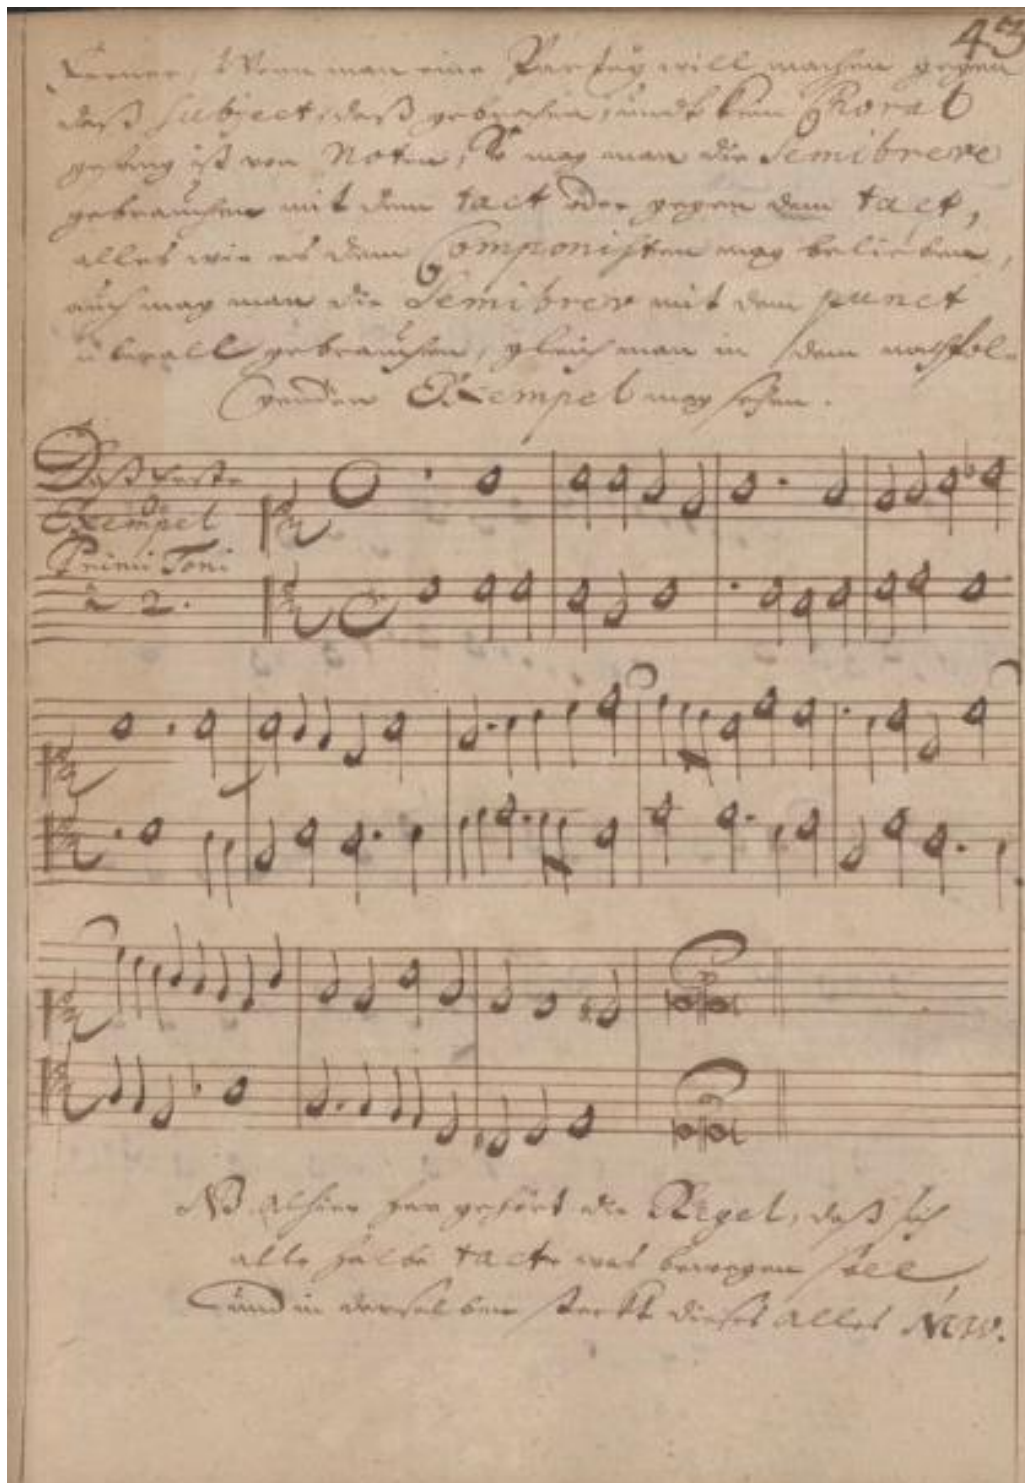 43
Ferner, Wenn man eine Partey will machen gegen
daß Subject, daß gebrochen, undt kein Choral
gesang ist von Noten, So mag man die Semibreve
gebrauchen mit dem tact oder gegen dem tact,
alles wie es dem Componisten mag belieben,
auch mag man die Semibrev mit dem punct
überall gebrauchen, gleich man in dem nachfol-
genden Exempel mag sehen.
Daß Erste
Exempel
Primi Toni
à 2.
NB alhier her gehört die Regel, daß sich
alle halbe tact was bewegen soll,
und in derselben steckt dieses alles